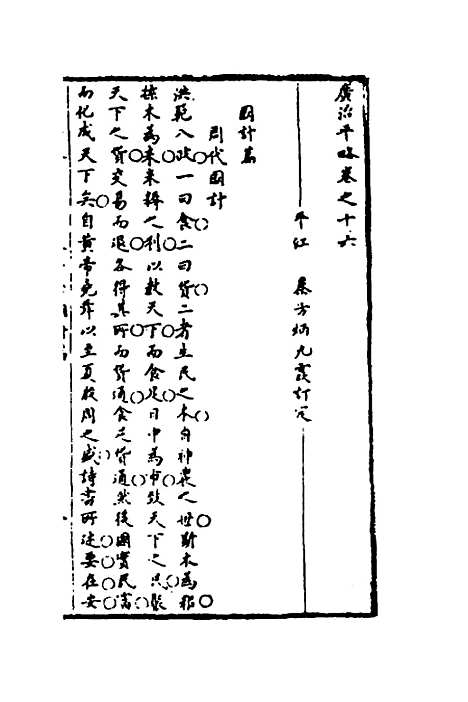 廣治平略卷之十六
平江 蔡方炳九霞訂定
國計篇
歷代國計
洪範八政一曰食二曰貨二者生民之本自神農之世斲木為耜
揉木為耒耒耨之利以教天下而食足日中為市致天下之民聚
天下之貨交易而退各得其所而貨通食足貨通然後國實民富
而化成天下矣自黃帝堯舜以至夏殷周之盛詩書所述要在安